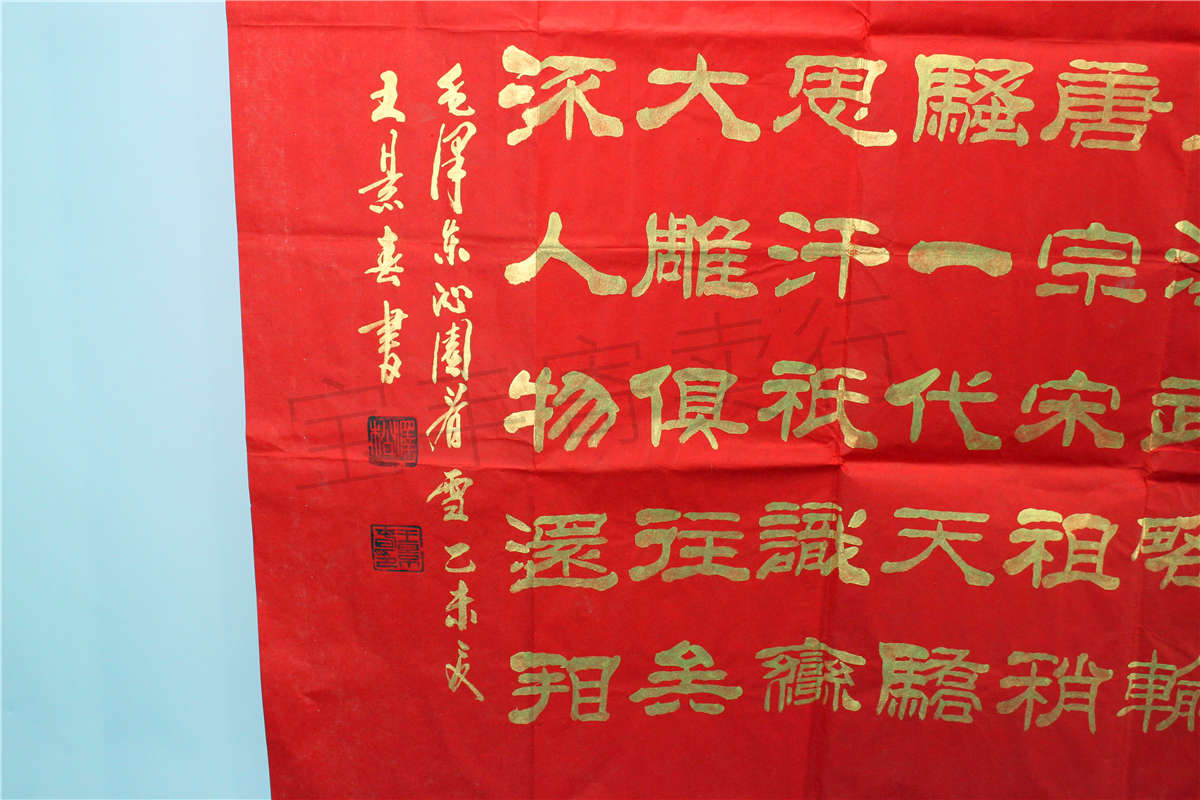 武略輸
唐宗宋祖稍
騷一代天驕
思汗祇識彎
大雕俱往矣
流人物還看
毛澤东沁園春雪乙未夏
王景春書